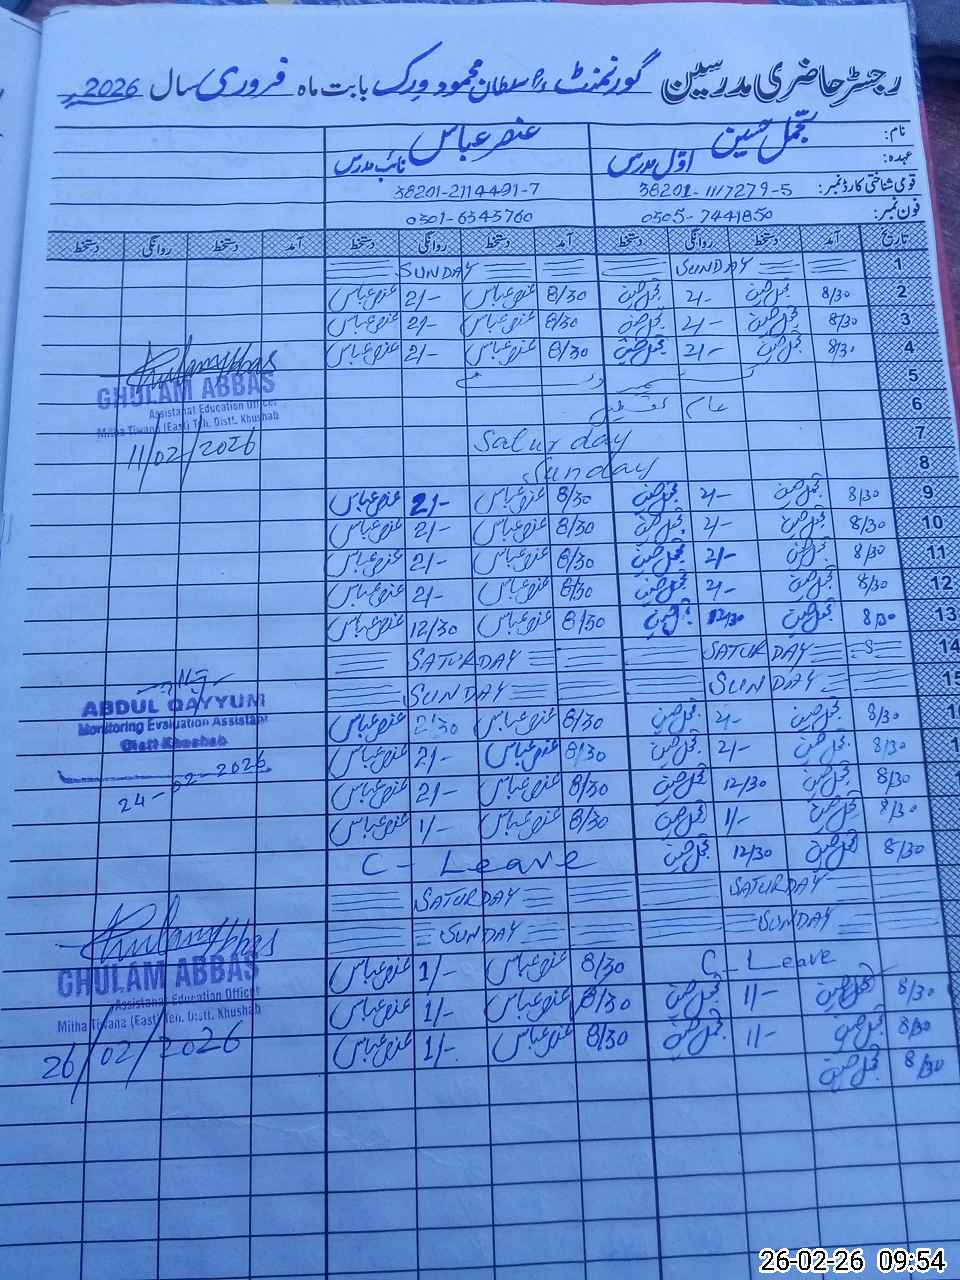 رجسٹر حاضری مدرسین گورنمنٹ سلطان محمود ورک بابت ماہ فروری سال 2026
نام: تجمل حسین عنصر عباس
عہدہ: اوّل مدرس نائب مدرس
قومی شناختی کارڈ نمبر: 38201-1117279-5 38201-2114491-7
فون نمبر: 0305-7441850 0301-6343760
تاریخ آمد دستخط روانگی دستخط آمد دستخط روانگی دستخط آمد دستخط روانگی دستخط
1 SUNDAY SUNDAY
2 8/30 تجمل حسین 2/- تجمل حسین 8/30 عنصر عباس 2/- عنصر عباس
3 8/30 تجمل حسین 2/- تجمل حسین 8/30 عنصر عباس 2/- عنصر عباس
4 8/30 تجمل حسین 2/- تجمل حسین 8/30 عنصر عباس 2/- عنصر عباس
5
6 عام تعطیل
7 Saturday
8 Sunday
9 8/30 تجمل حسین 2/- تجمل حسین 8/30 عنصر عباس 2/- عنصر عباس
10 8/30 تجمل حسین 2/- تجمل حسین 8/30 عنصر عباس 2/- عنصر عباس
11 8/30 تجمل حسین 2/- تجمل حسین 8/30 عنصر عباس 2/- عنصر عباس
12 8/30 تجمل حسین 2/- تجمل حسین 8/30 عنصر عباس 2/- عنصر عباس
13 8/30 تجمل حسین 12/30 تجمل حسین 8/30 عنصر عباس 12/30 عنصر عباس
14 SATURDAY SATURDAY
15 SUNDAY SUNDAY
8/30 تجمل حسین 2/- تجمل حسین 8/30 عنصر عباس 2/30 عنصر عباس
8/30 تجمل حسین 2/- تجمل حسین 8/30 عنصر عباس 2/- عنصر عباس
8/30 تجمل حسین 12/30 تجمل حسین 8/30 عنصر عباس 2/- عنصر عباس
8/30 تجمل حسین 1/- تجمل حسین 8/30 عنصر عباس 1/- عنصر عباس
8/30 تجمل حسین 12/30 تجمل حسین C - Leave
SATURDAY SATURDAY
SUNDAY SUNDAY
C - Leave 8/30 عنصر عباس 1/- عنصر عباس
8/30 تجمل حسین 1/- تجمل حسین 8/30 عنصر عباس 1/- عنصر عباس
8/30 تجمل حسین 1/- تجمل حسین 8/30 عنصر عباس 1/- عنصر عباس
8/30 تجمل حسین
GHULAM ABBAS
Assistanat Education Officer
Mitha Tiwana (East) Teh. Distt. Khushab
11/02/2026
ABDUL QAYYUM
Monitoring Evaluation Assistant
Distt Khushab
24-02-2026
GHULAM ABBAS
Assistanat Education Officer
Mitha Tiwana (East) Teh. Distt. Khushab
26/02/2026
26-02-26 09:54